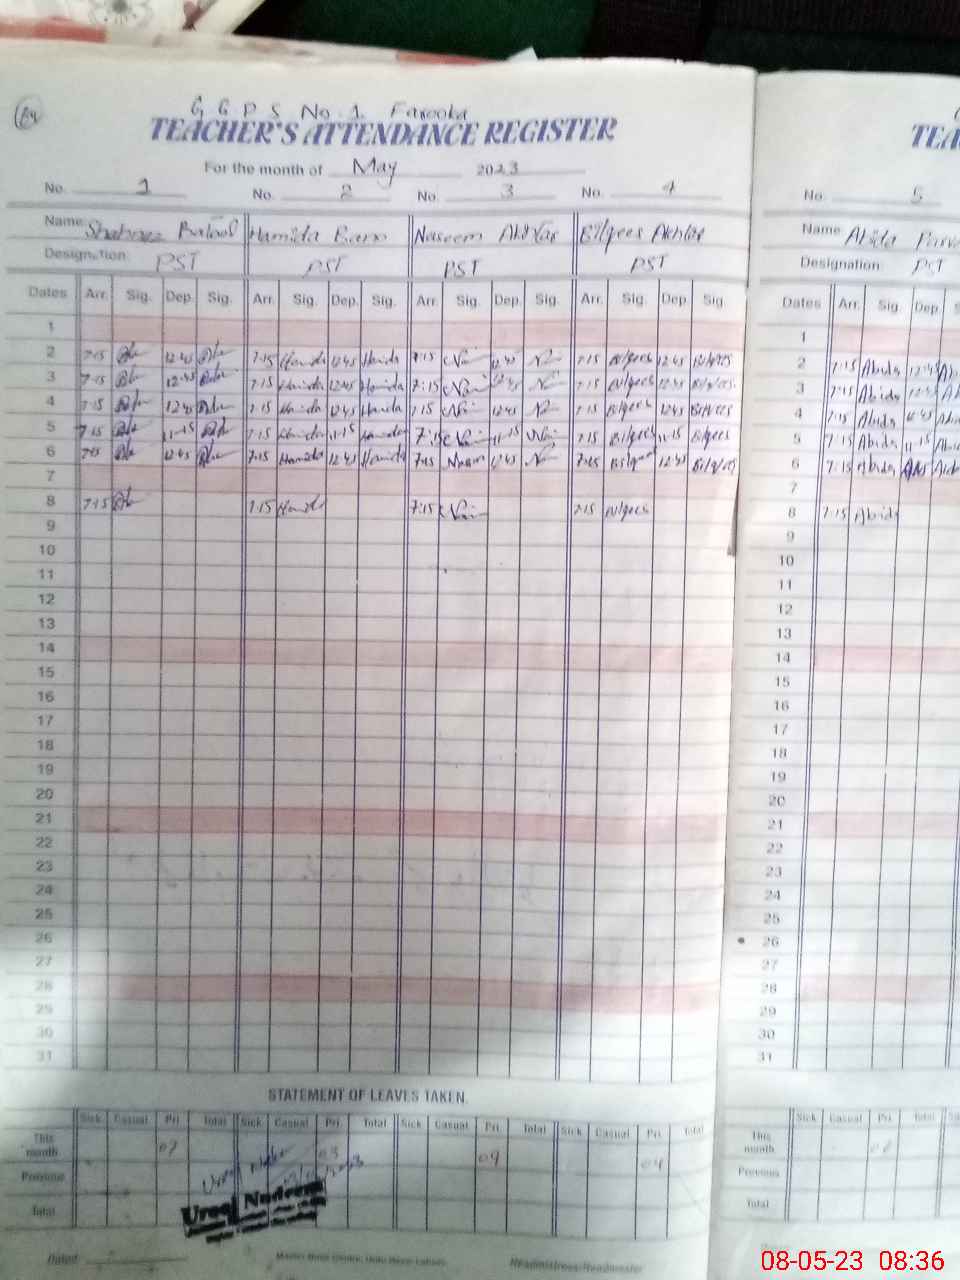 G G P S No. 1 Farooka
TEACHER'S ATTENDANCE REGISTER
For the month of May 2023
No. 1 No. 2 No. 3 No. 4
Name Shahnaz Batool Hamida Bano Naseem Akhtar Bilqees Akhtar
Designation PST PST PST PST
Dates Arr. Sig. Dep. Sig. Arr. Sig. Dep. Sig. Arr. Sig. Dep. Sig. Arr. Sig. Dep. Sig.
1
2 7:15 12:45 7:15 Hamida 12:45 Hamida 7:15 12:45 7:15 Bilqees 12:45 Bilqees
3 7:15 12:45 7:15 Hamida 12:45 Hamida 7:15 7:15 Bilqees 12:45 Bilqees
4 7:15 12:45 7:15 Hamida 12:45 Hamida 7:15 12:45 7:15 Bilqees 12:45 Bilqees
5 7:15 11:15 7:15 Hamida 11:15 Hamida 7:15 11:15 7:15 Bilqees 11:15 Bilqees
6 7:15 12:45 7:15 Hamida 12:45 Hamida 7:15 Naseem 12:45 7:15 Bilqees 12:45 Bilqees
7
8 7:15 7:15 Hamida 7:15 7:15 Bilqees
9
10
11
12
13
14
15
16
17
18
19
20
21
22
23
24
25
26
27
28
29
30
31
STATEMENT OF LEAVES TAKEN.
Sick Casual Pri. Total Sick Casual Pri. Total Sick Casual Pri. Total Sick Casual Pri. Total
This month 07 03 09 04
Previous
Total
Dated
Headmistress/Headmaster
No. 5
Name Abida
Designation PST
Dates Arr. Sig. Dep.
1
2 7:15 Abida 12:45
3 7:15 Abida
4 7:15 Abida 12:45
5 7:15 Abida 11:15
6 7:15 Abida
7
8 7:15 Abida
9
10
11
12
13
14
15
16
17
18
19
20
21
22
23
24
25
26
27
28
29
30
31
Sick Casual Pri. Total
This month
Previous
Total
08-05-23 08:36